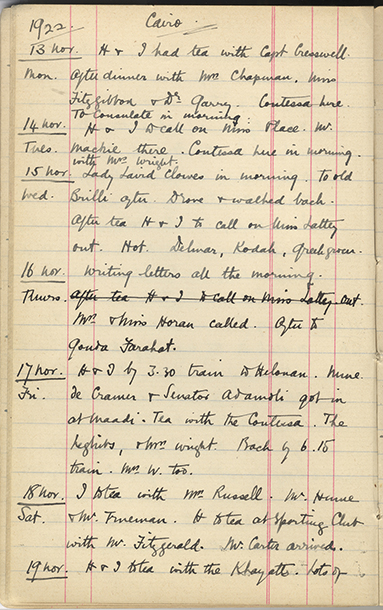 1922. Cairo.
13 Nov. H & I had tea with Capt Cresswell.
Mon. After dinner with Mrs Chapman. Miss
Fitzgibbon & Dr Garry. Contessa here.
To Consulate in morning.
14 Nov. H & I to call on Miss Place. Mr
Tues. Mackie there. Contessa here in morning.
with Mrs Wright.
15 Nov. Lady Laird Clowes in morning. To old
Wed. Brilli after. Drove & walked back.
After tea H & I to call on Miss Lattey
out. Hot. Delmar, Kodak, Greengrocer.
16 Nov. Writing letters all the morning.
Thurs. After tea H & I to call on Miss Lattey out.
Mrs & Miss Horan called. After to
Gouda Farahat.
17 Nov. H & I by 3.30 train to Helouan. Mme
Fri. de Cramer & Senator Adamoli got in
at Maadi. Tea with the Contessa. The
& Mrs Wright. Back by 6.15
train. Mrs W. too.
18 Nov. I to tea with Mrs Russell. Mr Hume
Sat. & Mr Trueman. H to tea at Sporting Club
with Mr Fitzgerald. Mr Carter arrived.
19 Nov. H & I to tea with the Khayatts. Lots of